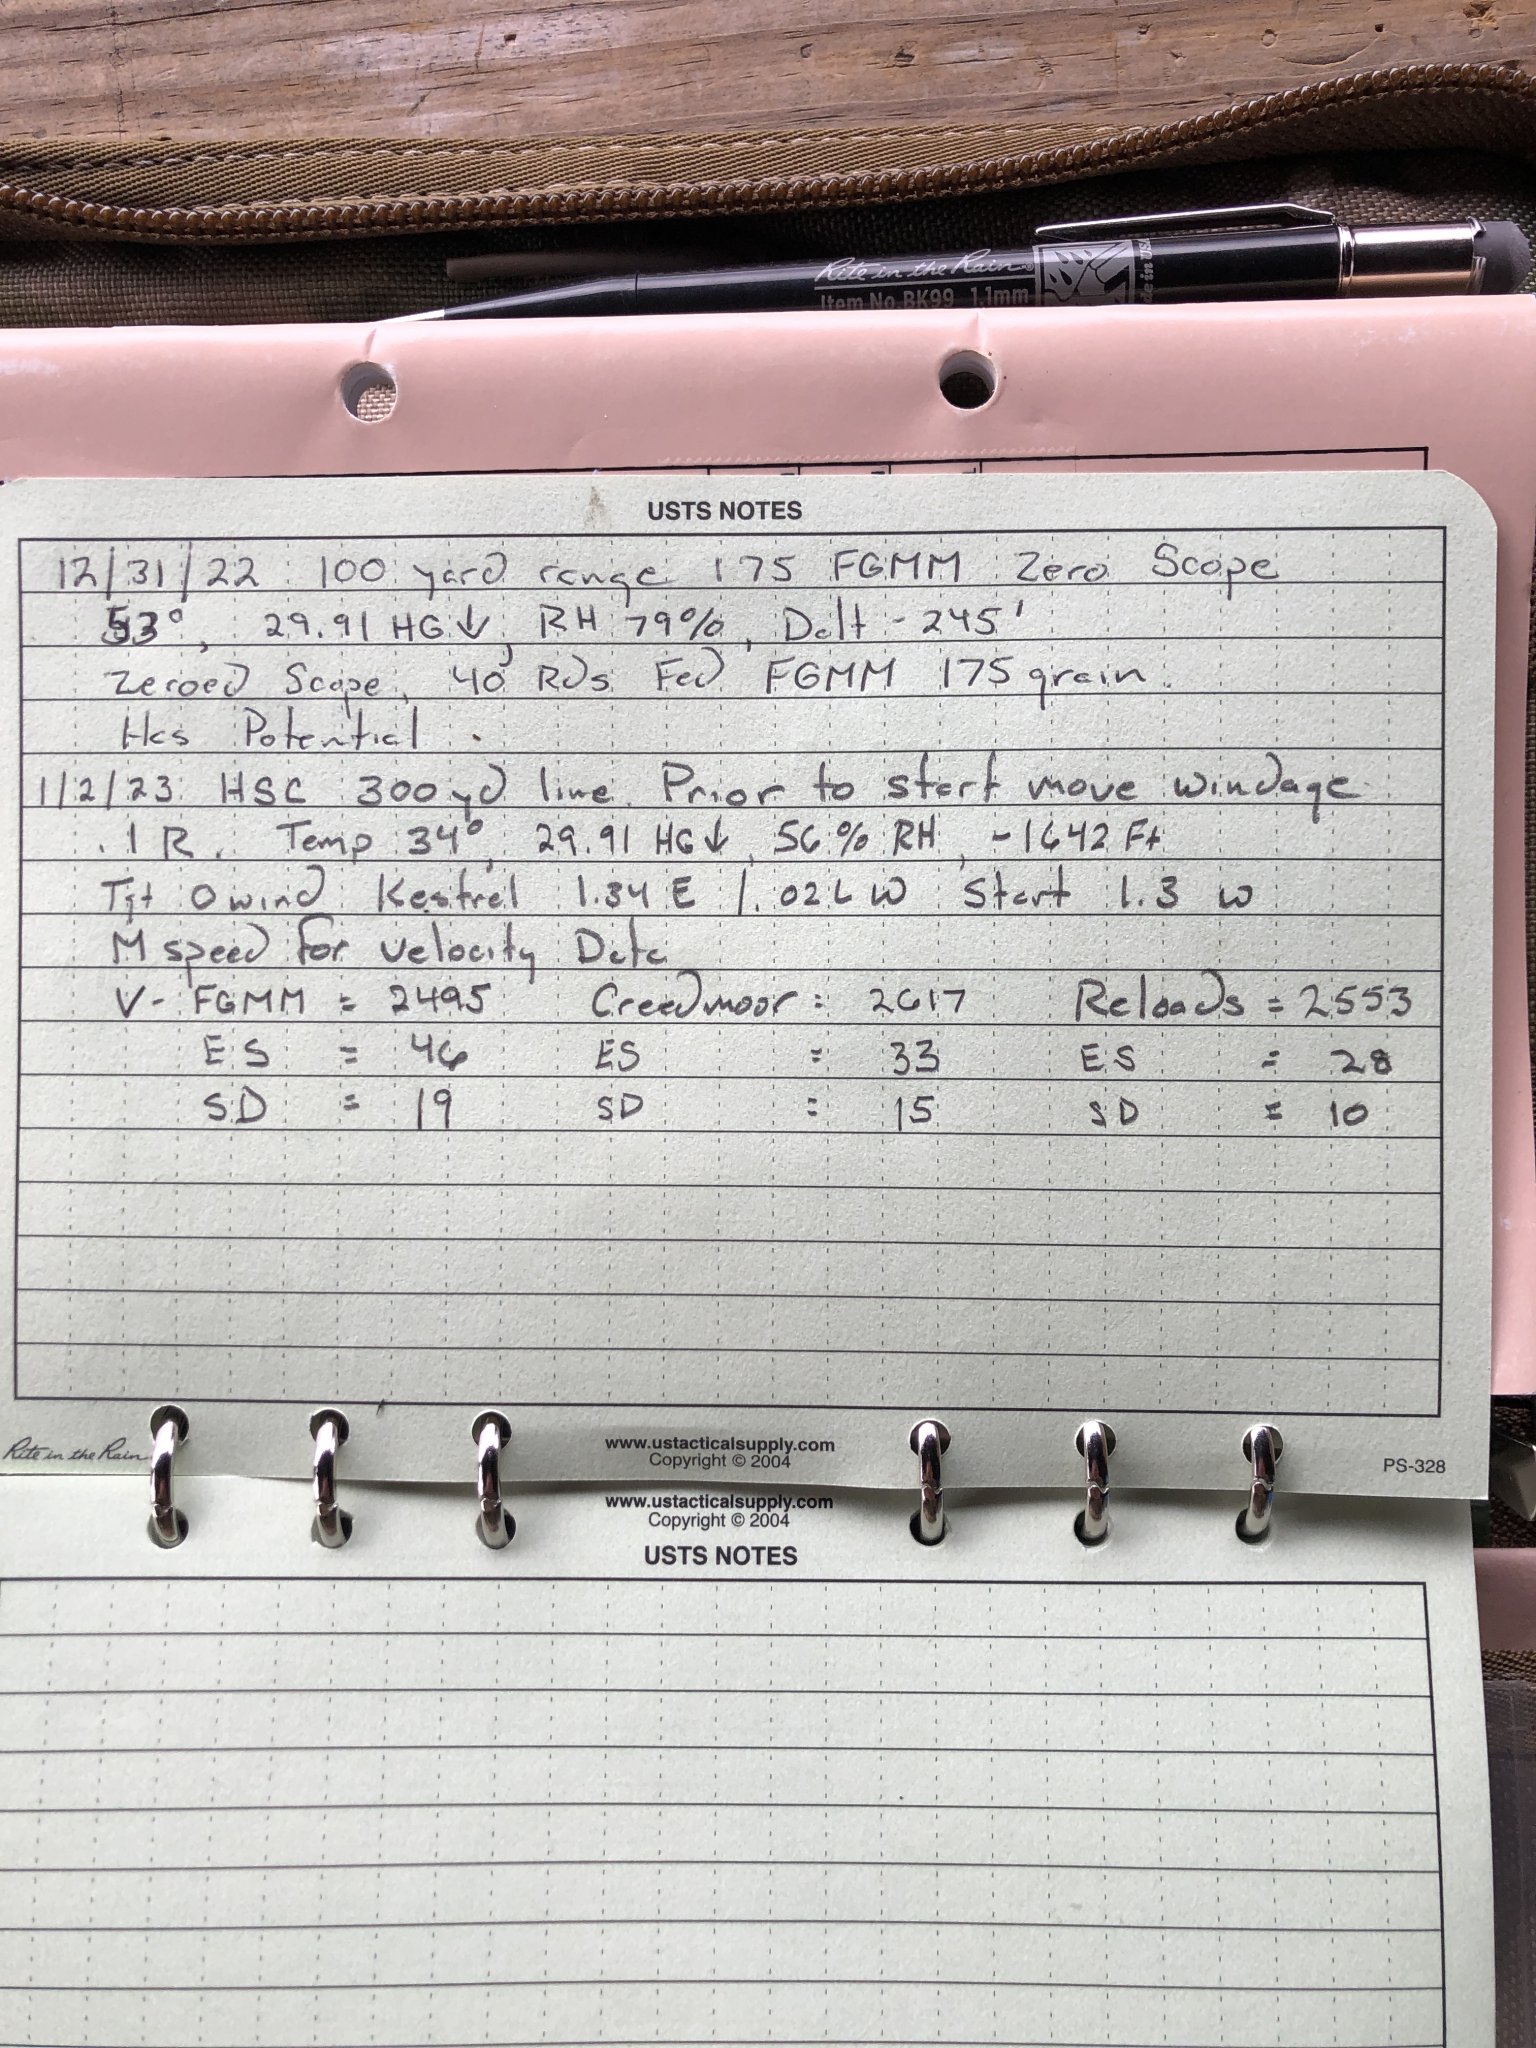 Rite in the Rain
Item No. BK99 1.1mm
USTS NOTES
12/31/22 100 yard range 175 FGMM Zero Scope
53°, 29.91 HG↓, RH 79%, Dalt - 245'
Zeroed Scope, 40 Rds Fed FGMM 175 grain.
Has Potential.
1/2/23 HSC 300 yd line. Prior to start move windage
.1 R. Temp 34°, 29.91 HG↓, 56% RH, -1642 Ft
Tgt 0 wind Kestrel 1.34 E /.02 L W Start 1.3 W
M speed for velocity Data
V- FGMM = 2495 Creedmoor = 2617 Reloads = 2553
ES = 46 ES = 33 ES = 28
SD = 19 SD = 15 SD = 10
Rite in the Rain
www.ustacticalsupply.com
Copyright © 2004
PS-328
www.ustacticalsupply.com
Copyright © 2004
USTS NOTES